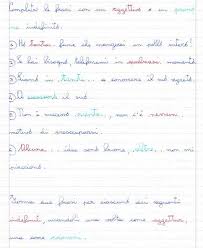 Completa le frasi con un aggettivo o un pronome indefinito.
① Ho tanta fame che mangerei un pollo intero!
② Se hai bisogno, telefonami in qualsiasi momento
③ Siamo in tanti... a conoscere il tuo segreto
④ A ciascuno il suo.
⑤ Non è successo niente, non c'è nessun
motivo di preoccuparsi.
⑥ Alcune... idee sono buone, altre... non mi
piacciono.
Forma due frasi per ciascuno dei seguenti
indefiniti, usandoli una volta come aggettivi,
una come pronomi.